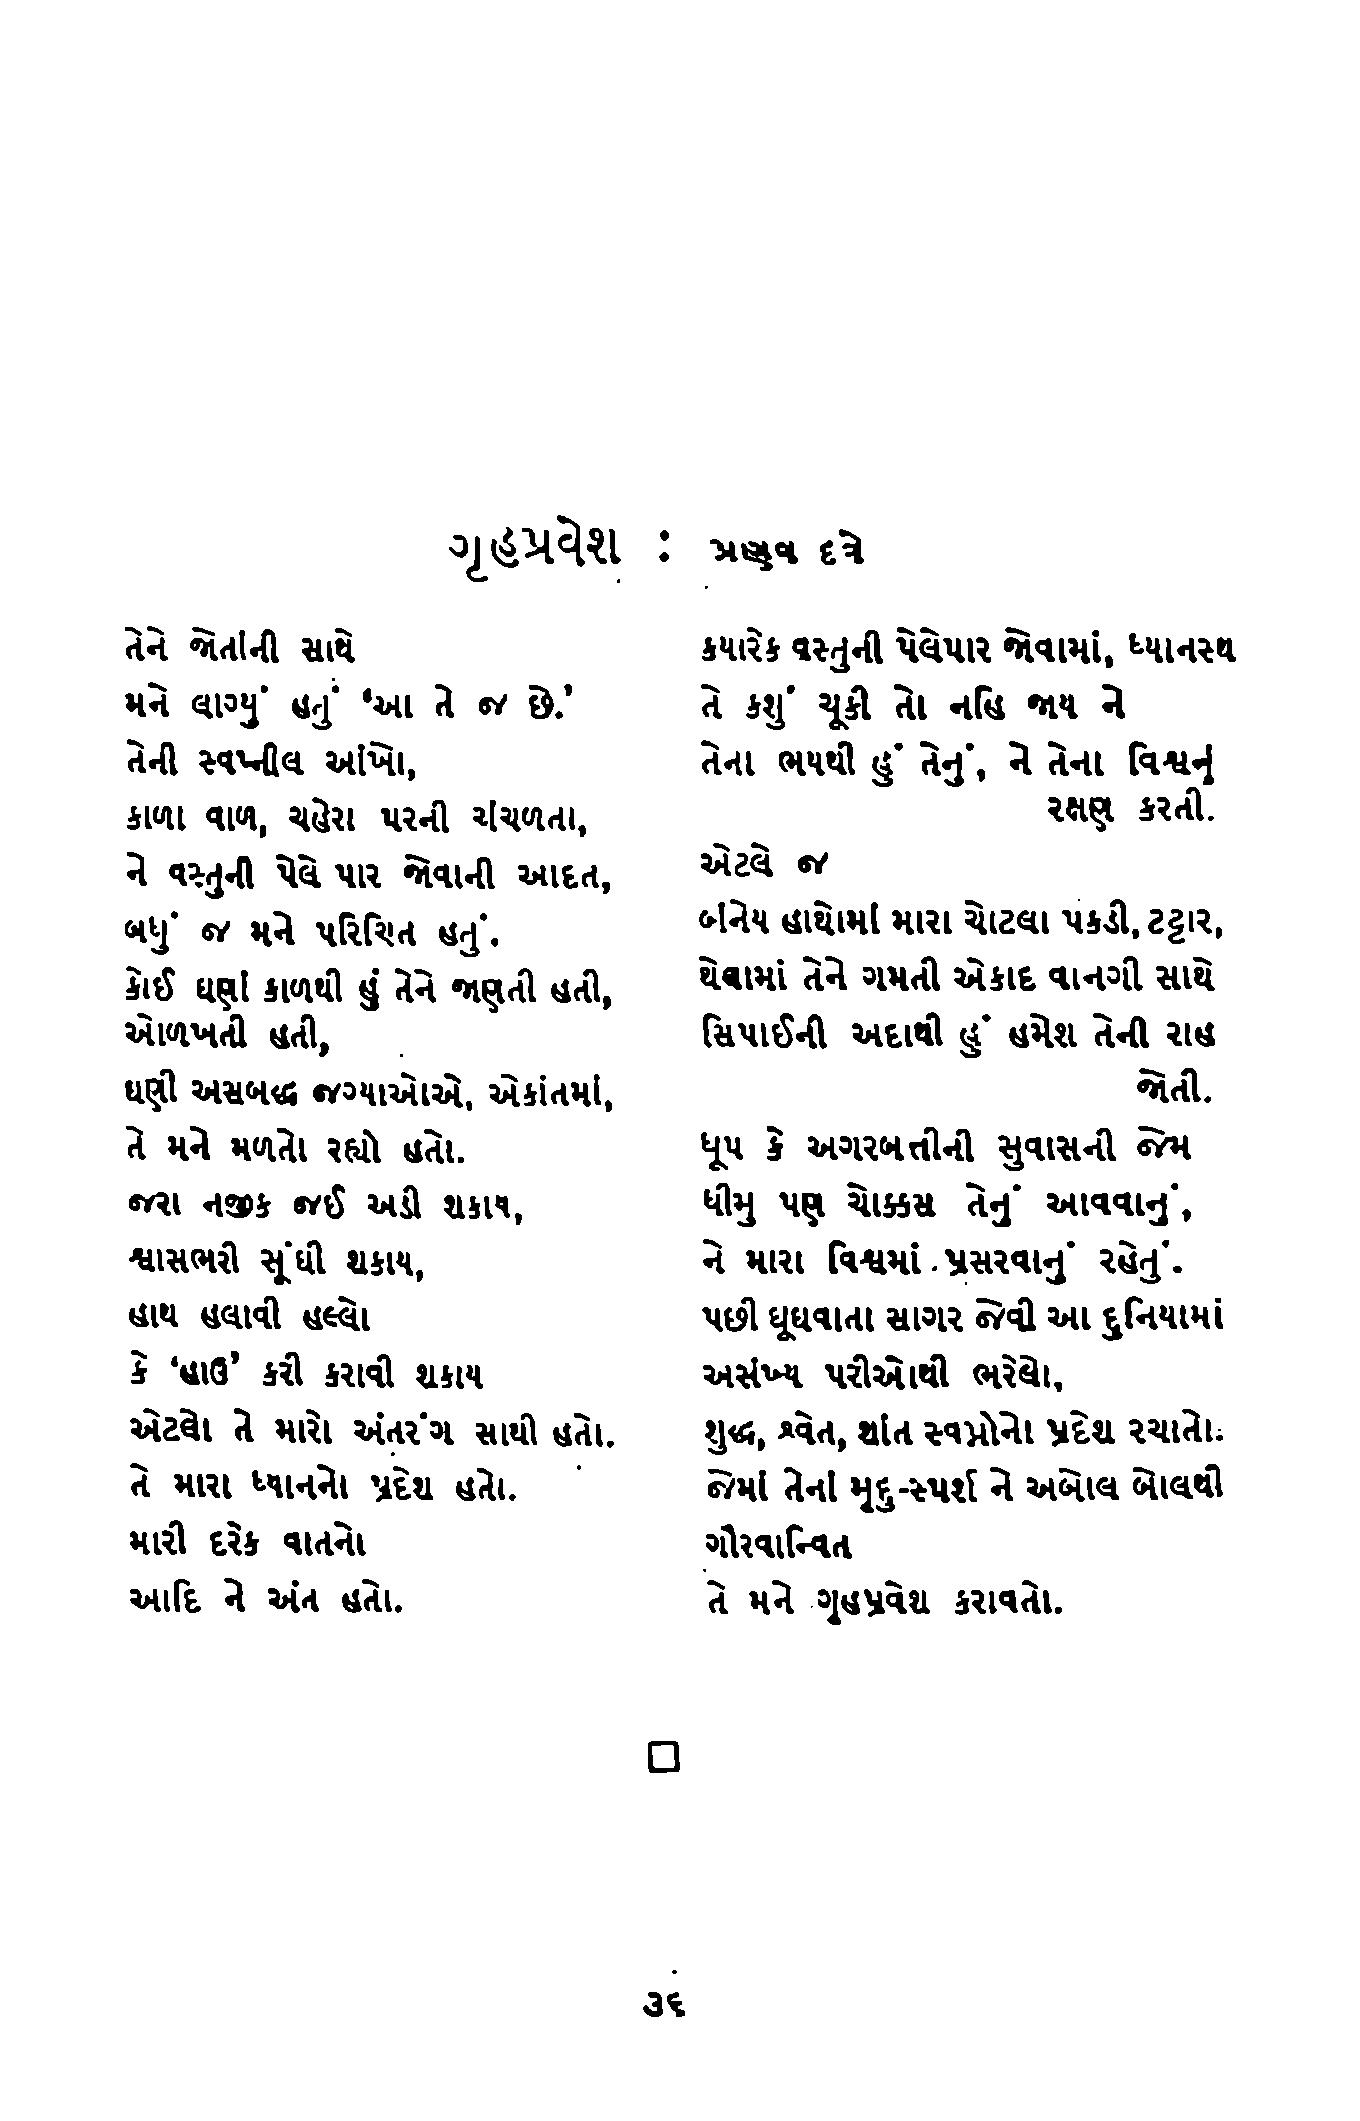 ગૃહપ્રવેશ : પ્રણવ દત્રે
તેને જોતાંની સાથે
મને લાગ્યું હતું ‘આ તે જ છે.’
તેની સ્વપ્નીલ આંખો,
કાળા વાળ, ચહેરા પરની ચંચળતા,
ને વસ્તુની પેલે પાર જોવાની આદત,
બધું જ મને પરિચિત હતું.
કોઈ ઘણાં કાળથી હું તેને જાણતી હતી,
ઓળખતી હતી,
ઘણી અસબદ્ધ જગ્યાઓએ, એકાંતમાં,
તે મને મળતો રહ્યો હતો.
જરા નજીક જઈ અડી શકાય,
શ્વાસભરી સૂંઘી શકાય,
હાથ હલાવી હલ્લો
કે ‘હાઉ’ કરી કરાવી શકાય
એટલો તે મારો અંતરંગ સાથી હતો.
તે મારા ધ્યાનનો પ્રદેશ હતો.
મારી દરેક વાતનો
આદિ ને અંત હતો.
કયારેક વસ્તુની પેલેપાર જોવામાં, ધ્યાનસ્થ
તે કશું ચૂકી તો નહિ જાય ને
તેના ભયથી હું તેનું, ને તેના વિશ્વનું
રક્ષણ કરતી.
એટલે જ
બંનેય હાથોમાં મારા ચોટલા પકડી, ટટ્ટાર,
થેવામાં તેને ગમતી એકાદ વાનગી સાથે
સિપાઈની અદાથી હું હમેશ તેની રાહ
જોતી.
ધૂપ કે અગરબત્તીની સુવાસની જેમ
ધીમુ પણ ચોક્કસ તેનું આવવાનું,
ને મારા વિશ્વમાં પ્રસરવાનું રહેતું.
પછી ઘૂઘવાતા સાગર જેવી આ દુનિયામાં
અસંખ્ય પરીઓથી ભરેલો,
શુદ્ધ, શ્વેત, શાંત સ્વપ્નોનો પ્રદેશ રચાતો.
જેમાં તેનાં મૃદુ-સ્પર્શ ને અબોલ બોલથી
ગૌરવાન્વિત
તે મને ગૃહપ્રવેશ કરાવતો.
૩૬